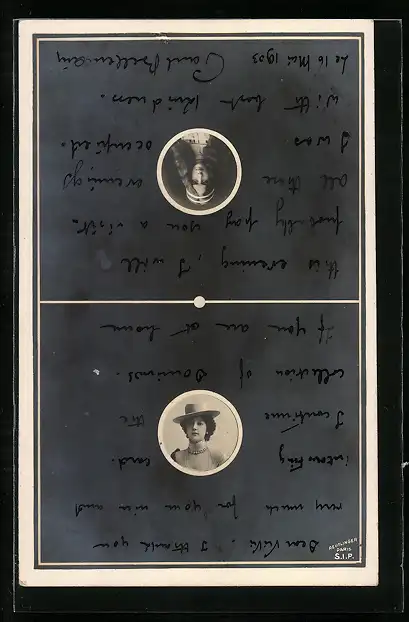 Dear Vicki, I thank you
very much for your nice and
interesting card.
I continue the
collection of Dominos.
If you are at home
this evening, I will
probably pay you a visit.
all these evenings
I was occupied.
With best kindness.
Le 16 Mai 1903 Paul
REUTLINGER
PARIS
S.I.P.